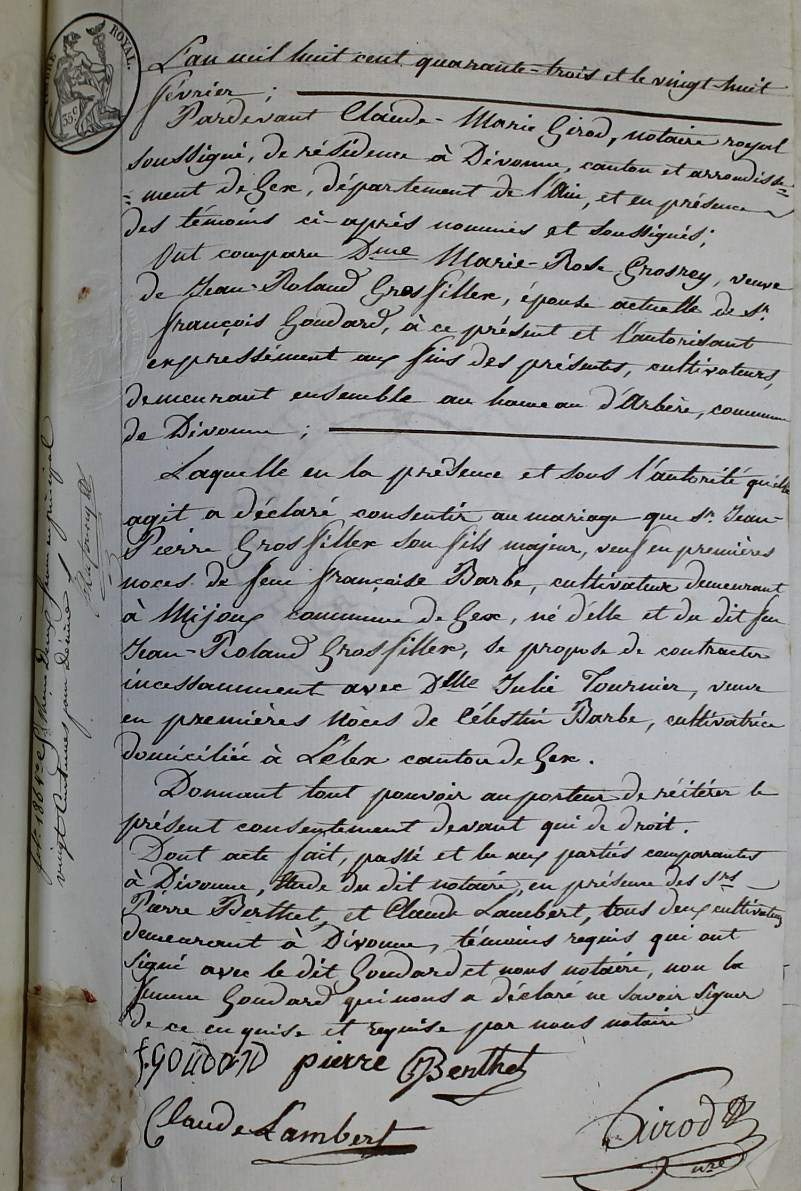 TIMBRE ROYAL.
35 c
L'an mil huit cent quarante-trois et le vingt huit
février ;
Pardevant Claude-Marie Girod, notaire royal
soussigné, de résidence à Divonne, canton et arrondisse=
=ment de Gex, département de l'Ain, et en présence
des témoins ci-après nommés et soussignés ;
Ont comparu Dme Marie-Rose Grosrey, veuve
de Jean-Roland Grosfillex, épouse actuelle de Sr.
François Goudard, à ce présent et l'autorisant
expressément aux fins des présentes, cultivateurs,
demeurant ensemble au hameau d'Arbère, commune
de Divonne ;
Laquelle en la présence et sous l'autorité qu'elle
agit a déclaré consentir au mariage que Sr. Jean-
Pierre Grosfillex son fils majeur, veuf en premières
noces de feue Françoise Barbe, cultivateur demeurant
à Mijoux commune de Gex, né d'elle et du dit feu
Jean-Roland Grosfillex, se propose de contracter
incessamment avec Dlle Julie Tournier, veuve
en premières noces de Célestin Barbe, cultivatrice
domiciliée à Lélex canton de Gex.
Donnant tout pouvoir au porteur de réitérer le
présent consentement devant qui de droit.
Dont acte fait, passé et lu aux parties comparantes
à Divonne, Etude du dit notaire, en présence des Srs
Pierre Berthet, et Claude Lambert, tous deux cultivateurs
demeurant à Divonne, témoins requis qui ont
signé avec le dit Goudard et nous notaire, non la
femme Goudard qui nous a déclaré ne savoir signer
de ce enquise et requise par nous notaire
f. GOUDARD pierre Berthet
Claude Lambert
Girod
nre
deux francs principal
vingt centimes pour décime